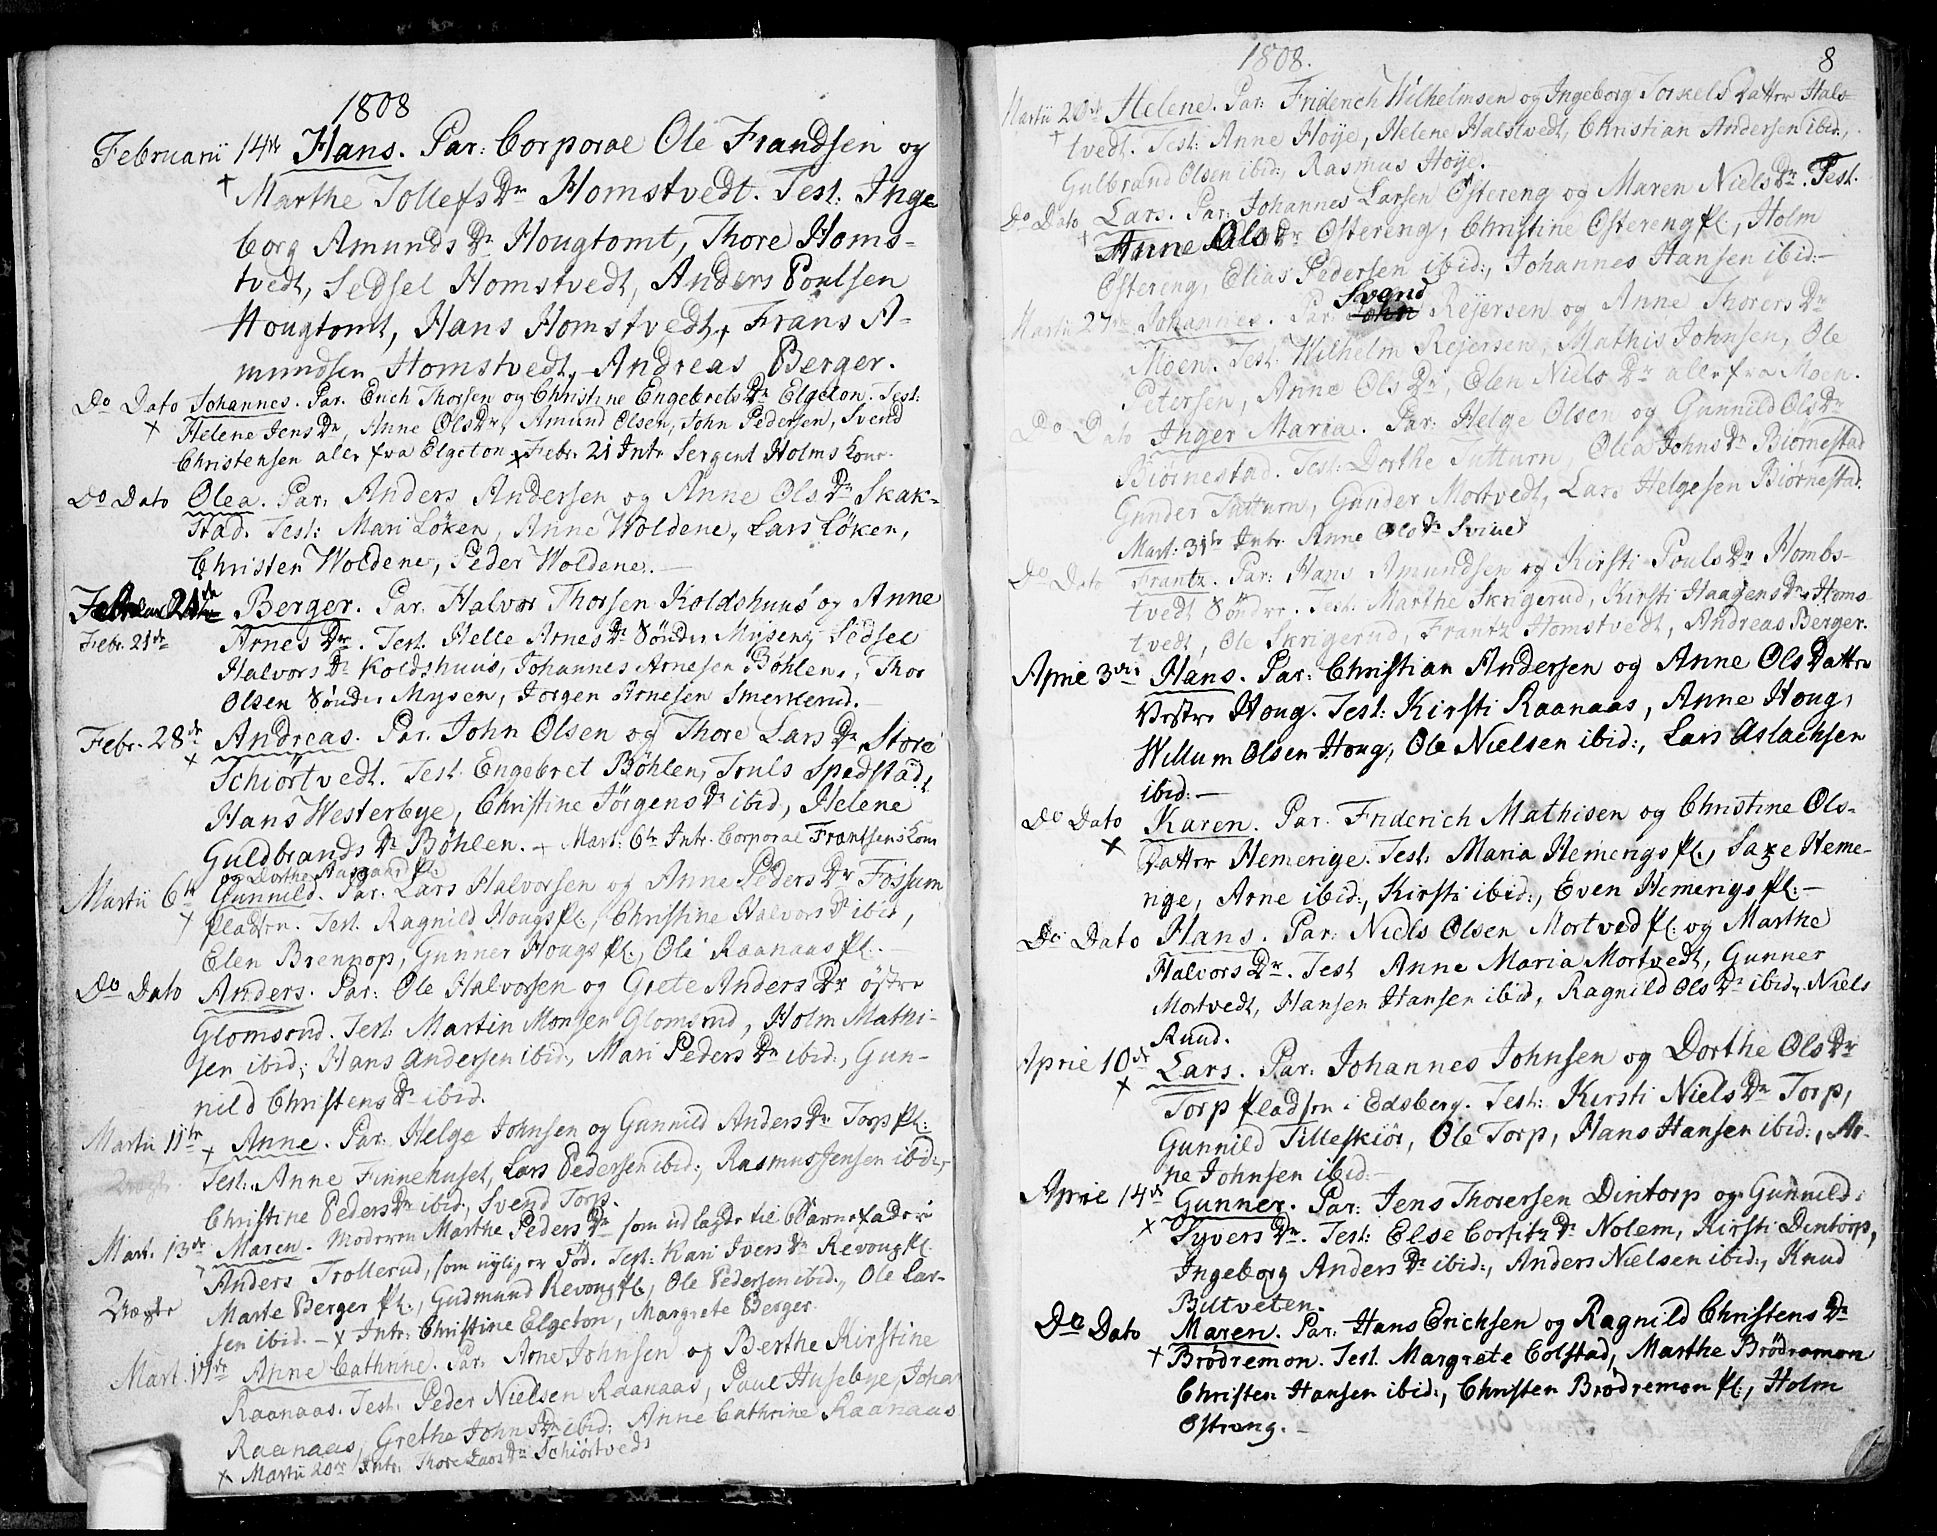 1808
Februarii 14de Hans. Par: Corporal Ole Frandsen og
Marthe TollefsDr Homstvedt. Test: Inge
borg AmundsDr Hougtomt, Thore Homs-
tvedt, Sedsel Homstvedt, Anders Poulsen
Hougtomt, Hans Homstvedt, Frans A-
mundsen Homstvedt, Andreas Berger.
Do Dato Johannes. Par. Erich Thorsen og Christine EngebretsDr Elgeton. Test:
Helene JensDr, Anne OlsDr, Amund Olsen, John Pedersen, Svend
Christensen alle fra Elgeton x Febr. 21 Intr. Sergent Holms Kone
Do Dato Olea. Par: Anders Andersen og Anne OlsDr Skak-
stad. Test: Mari Löken, Anne Woldene, Lars Löken,
Christen Woldene, Peder Woldene.—
Berger. Par. Halvor Thorsen Koldshuus og Anne
Febr. 21de ArnesDr. Test. Helle ArnesDr Sönder Mysen, Sedsel
HalvorsDr Koldshuus, Johannes Arnesen Böhlen, Thor
Olsen Sönder Mysen, Jörgen Arnesen Smerkerud.—
Febr. 28de Andreas. Par. John Olsen og Thore LarsDr Store
Schiörtvedt. Test. Engebret Böhlen, Truls Spedstad,
Hans Westerbye, Christine JörgensDr ibid, Helene
GuldbrandsDr Böhlen.— Mart: 6te Intr. Corporal Frantsens Kone
og Dorthe Aasgaard Pl.
Martii 6te Gunnild. Par. Lars Halvorsen og Anne PedersDr Fossum
pladsen. Test. Ragnild Hougs Pl., Christine HalvorsDr ibid,
Elen Brennop, Gunner Hougs Pl., Ole Raanaas Pl.—
Do Dato Anders. Par: Ole Halvorsen og Grete AndersDr östre
Glomsrud. Test. Martin Monsen Glomsrud, Holm Mathi-
sen ibid, Hans Andersen ibid, Mari PedersDr ibid:, Gun-
nild ChristensDr ibid.
Martii 11te Anne. Par: Helge Johnsen og Gunnild AndersDr Torp Pl:
Test: Anne Finnehuset, Lars Pedersen ibid:, Rasmus Jensen ibid:,
Christine PedersDr ibid, Svend Torp.
Mart. 13de Maren. Moderen Marthe PedersDr som udlagde til Barnefader
Anders Trollerud, som nylig er död. Test: Kari IversDr Revoug Pl.
Uægte Marte Berger Pl., Gudmund Revoug Pl., Ole Pedersen ibid., Ole Lar-
sen ibid.— x Intr: Christine Elgeton, Margrete Berger.
Mart. 17de Anne Cathrine. Par. Arne Johnsen og Berthe Kirstine
Raanaas. Test. Peder Nielsen Raanaas, Paul Husebye, Joha
Raanaas, Grethe JohnsDr ibid: Anne Cathrine Raanaas
x Martii 20de Intr: Thore LarsDr Schiörtvedt
1808. 8
Martii 20de Helene. Par: Friderich Wilhelmsen og Ingeborg Torkels Datter Hals-
tvedt. Test: Anne Höye, Helene Halstvedt, Christian Andersen ibid.,
Gulbrand Olsen ibid:, Rasmus Höye.
Do Dato Lars. Par: Johannes Larsen Östereng og Maren NielsDr. Test.
Anne OlsDr Östereng, Christine Östereng Pl., Holm
Östereng, Elias Pedersen ibid:, Johannes Hansen ibid:—
Svend
Martii 27de Johannes. Par: John Rejersen og Anne ThorersDr
Moen. Test: Wilhelm Rejersen, Mathis Johnsen, Ole
Petersen, Anne OlsDr, Elen NielsDr alle fra Moen.
Do Dato Inger Maria. Par: Helge Olsen og Gunnild OlsDr
Biörnestad. Test: Dorthe Tutturn, Olea JohnsDr Biörnestad
Gunder Tutturn, Gunder Mortvedt, Lars Helgesen Biörnestad.
Mart: 31te Intr. Anne OlsDr
Do Dato Frantz. Par: Hans Amundsen og Kirsti PoulsDr Hombs-
tvedt Söndre. Test: Marthe Skrigerud, Kirsti HaagensDr Homs
tvedt, Ole Skrigerud, Frantz Homstvedt, Andreas Berger.
April 3die Hans. Par: Christian Andersen og Anne Ols Datter
Vestre Houg. Test: Kirsti Raanaas, Anne Houg,
Willum Olsen Houg, Ole Nielsen ibid:, Lars Aslachsen
ibid:—
Do Dato Karen. Par. Friderich Mathisen og Christine Ols-
Datter Hemerige. Test: Maria Hemerigs Pl., Saxe Heme-
rige, Arne ibid:, Kirsti ibid:, Even Hemerigs Pl:—
Do Dato Hans. Par: Niels Olsen Mortved Pl: og Marthe
HalvorsDr. Test Anne Maria Mortvedt, Gunner
Mortvedt, Hansen Hansen ibid, Ragnild OlsDr ibid, Niels
Ruud.
April 10de Lars. Par: Johannes Johnsen og Dorthe OlsDr
Torp Pladsen i Edsberg. Test: Kirsti NielsDr Torp,
Gunnild Tilleskiör, Ole Torp, Hans Hansen ibid:, Ar-
ne Johnsen ibid:—
April 14de Gunner. Par: Jens Thorersen Dintorp og Gunnild
SyversDr. Test: Else CorfitzDr Nolem, Kirsti Dintorp,
Ingeborg AndersDr ibid:, Anders Nielsen ibid:, Knud
Biltveten.
Do Dato Maren. Par: Hans Erichsen og Ragnild ChristensDr
Brödremon. Test. Margrete Colstad, Marthe Brödremon
Christen Hansen ibid:, Christen Brödremon Pl., Holm
Östreng.—